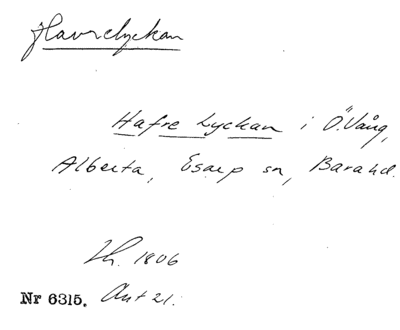 Havrelyckan
Hafre Lyckan i Ö. Vång,
Alberta, Esarp sn, Bara hd.
Lh. 1806
Nr 6315. Akt 21.